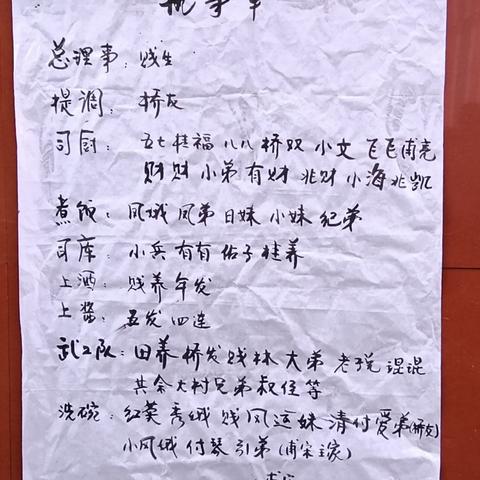 执事单
总理事：贱生
提调：桥友
司厨：五七桂福八八桥双小文飞飞甫亮
财财小弟有财兆财小海兆凯
煮饭：凤娥凤弟日妹小妹纪弟
司库：小兵有有佑子桂养
上酒：贱养年发
上酱：五发四连
武工队：田养桥发贱林大弟老子说混混
其余大村兄弟叔侄等
洗碗：红英秀娥贱凤运妹清付爱弟(桥友)
小凤娥付琴引弟(甫宋主家)